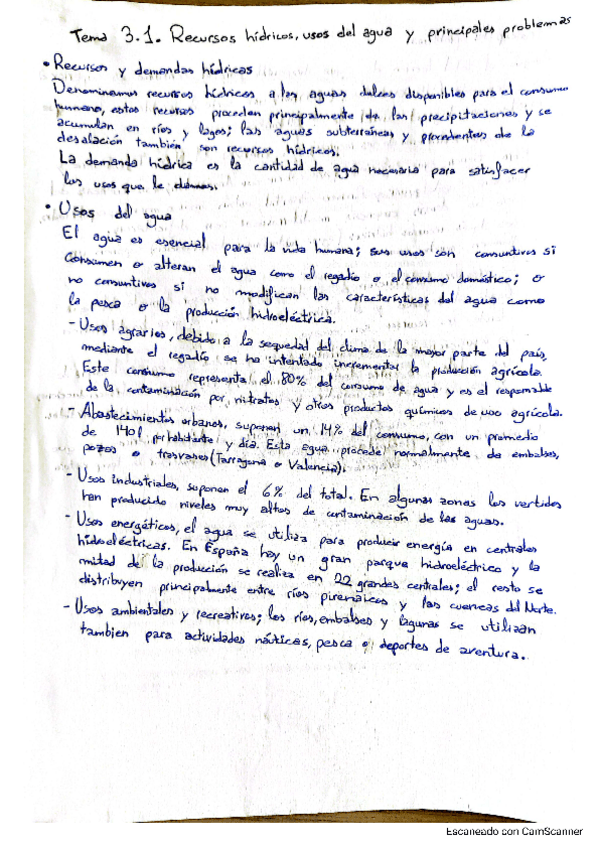 Tema 3.1. Recursos hídricos, usos del agua y principales problemas
• Recursos y demandas hídricas
Denominamos recursos hídricos a las aguas dulces disponibles para el consumo
humano, estos recursos proceden principalmente de las precipitaciones y se
acumulan en ríos y lagos; las aguas subterráneas y procedentes de la
desalación también son recursos hídricos.
La demanda hídrica es la cantidad de agua necesaria para satisfacer
los usos que le damos.
• Usos del agua
El agua es esencial para la vida humana; sus usos son consuntivos si
consumen o alteran el agua como el regadío o el consumo doméstico; o
no consuntivos si no modifican las características del agua como
la pesca o la producción hidroeléctrica.
- Usos agrarios, debido a la sequedad del clima de la mayor parte del país,
mediante el regadío se ha intentado incrementar la producción agrícola.
Este consumo representa el 80% del consumo de agua y es el responsable
de la contaminación por nitratos y otros productos químicos de uso agrícola.
- Abastecimientos urbanos, suponen un 14% del consumo, con un promedio
de 140 l por habitante y día. Esta agua procede normalmente de embalses,
pozos o trasvases (Tarragona o Valencia).
- Usos industriales, suponen el 6% del total. En algunas zonas los vertidos
han producido niveles muy altos de contaminación de las aguas.
- Usos energéticos, el agua se utiliza para producir energía en centrales
hidroeléctricas. En España hay un gran parque hidroeléctrico y la
mitad de la producción se realiza en 22 grandes centrales; el resto se
distribuyen principalmente entre ríos pirenaicos y las cuencas del Norte.
- Usos ambientales y recreativos; los ríos, embalses y lagunas se utilizan
tambien para actividades náuticas, pesca o deportes de aventura.
Escaneado con CamScanner